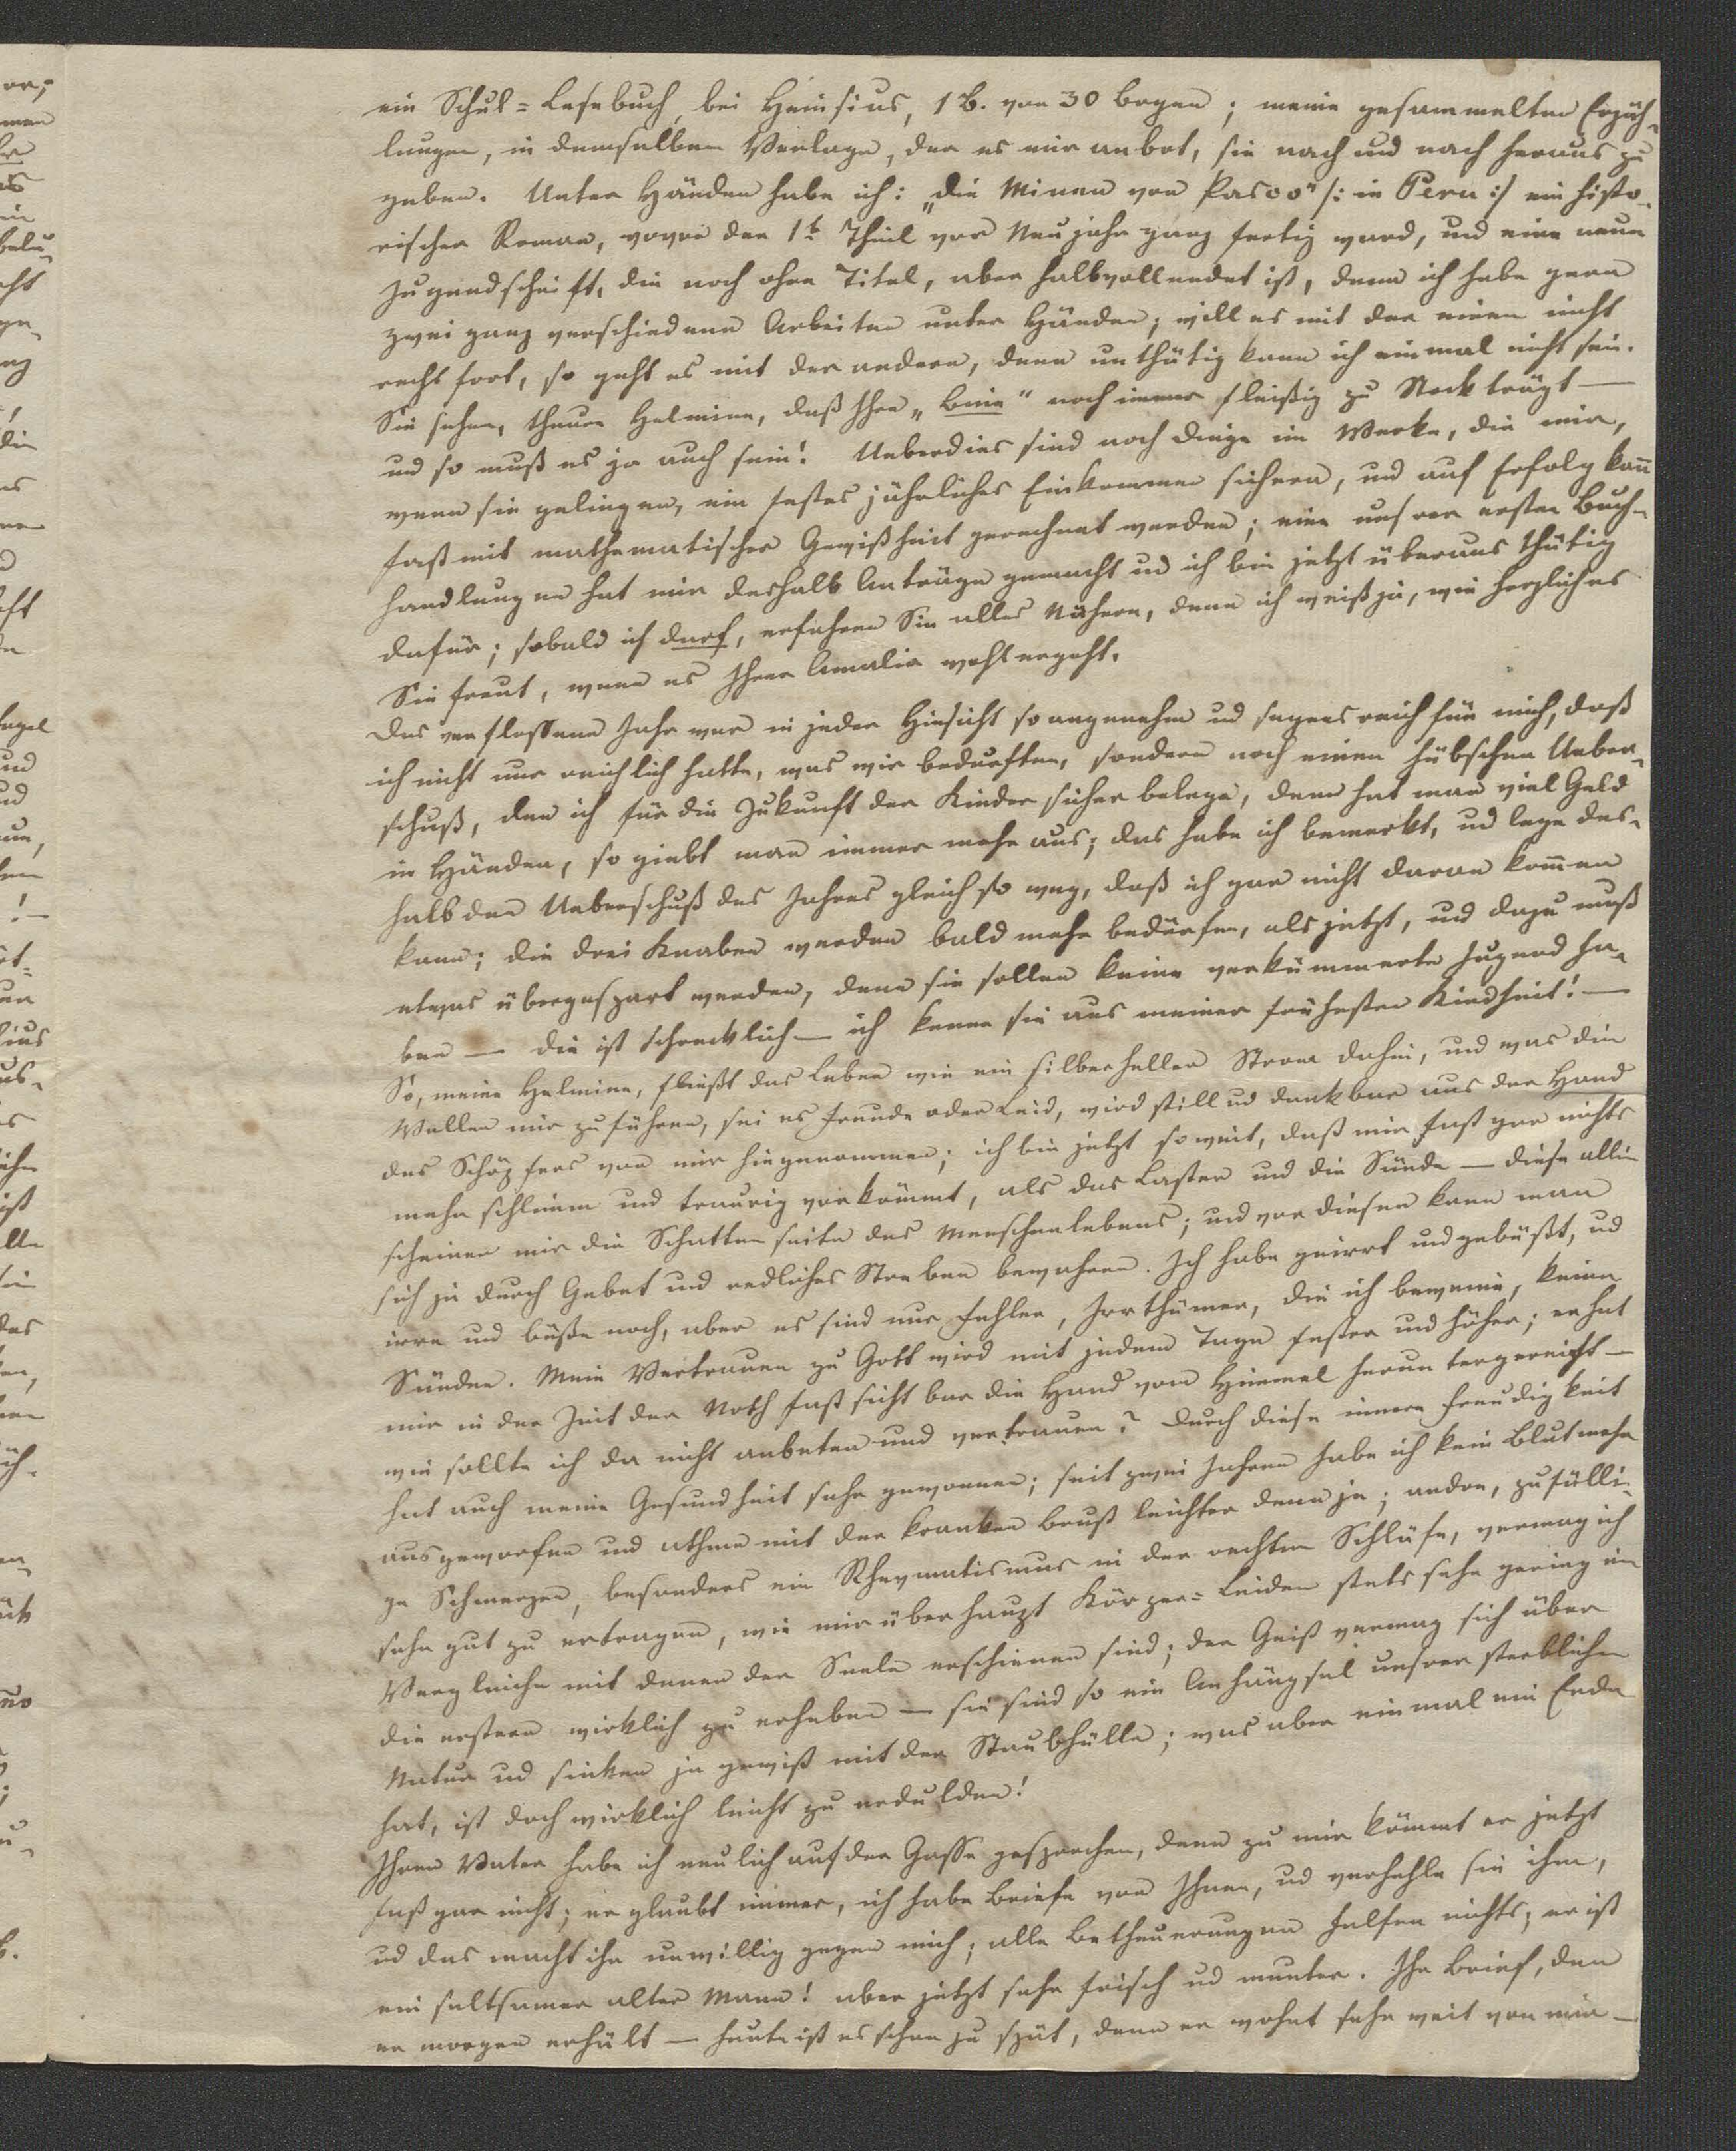 ein Schul=Lesebuch, bei Heinsius, 1 B. von 30 Bogen; meine gesammelten Erzäh-
lungen, in demselben Verlage, der es mir anbot, sie nach und nach heraus zu
geben. Unter Händen habe ich: „die Minen von Pasco“ /: in Peru :/ ein histo-
rischer Roman, wovon der 1t Theil vor Neujahr ganz fertig ward, und eine neue
Jugendschrift, die noch ohne Titel, aber halbvollendet ist, denn ich habe gern
zwei ganz verschiedene Arbeiten unter Händen; will es mit der einen nicht
recht fort, so geht es mit der andern, denn unthätig kann ich einmal nicht sein.
Sie sehen, theure Helmine, daß Ihre „Biene“ noch immer fleißig zu Stock trägt —
und so muß es ja auch sein! Ueberdies sind noch Dinge im Werke, die mir,
wenn sie gelingen, ein festes jährliches Einkommen sichern, und auf Erfolg kann
fast mit mathematischer Gewißheit gerechnet werden; eine unsrer ersten Buch-
handlungen hat mir deshalb Anträge gemacht und ich bin jetzt überaus thätig
dafür; sobald ich darf, erfahren Sie alles Nähere, denn ich weiß ja, wie herzlich es
Sie freut, wenn es Ihrer Amalia wohl ergeht.
Das verflossene Jahr war in jeder Hinsicht so angenehm und segensreich für mich, daß
ich nicht nur reichlich hatte, was wir bedurften, sondern noch einen hübschen Ueber-
schuß, den ich für die Zukunft der Kinder sicher belege, denn hat man viel Geld
in Händen, so giebt man immer mehr aus; das habe ich bemerkt, und lege des-
halb den Ueberschuß des Jahres gleich so weg, daß ich gar nicht daran kommen
kann; die drei Knaben werden bald mehr bedürfen, als jetzt, und dazu muß
etwas übergespart werden, denn sie sollen keine verkümmerte Jugend ha-
ben — die ist schrecklich — ich kenne sie aus meiner frühesten Kindheit! —
So, meine Helmine, fließt das Leben wie ein silberheller Strom dahin, und was die
Wellen mir zuführen, sei es Freude oder Leid, wird still und dankbar aus der Hand
des Schöpfers von mir hingenommen; ich bin jetzt so weit, daß mir fast gar nichts
mehr schlimm und traurig vorkömmt, als das Laster und die Sünde — diese allein
scheinen mir die Schattenseite des Menschenlebens; und vor diesen kann man
sich ja durch Gebet und redliches Streben bewahren. Ich habe geirrt und gebüßt, und
irre und büße noch, aber es sind nur Fehler, Irrthümer, die ich beweine, keine
Sünden. Mein Vertrauen zu Gott wird mit jedem Tage fester und höher; er hat
mir in der Zeit der Noth fast sichtbar die Hand vom Himmel heruntergereicht —
wie sollte ich da nicht anbeten und vertrauen? Durch diese innere Freudigkeit
hat auch meine Gesundheit sehr gewonnen; seit zwei Jahren habe ich kein Blut mehr
ausgeworfen und athme mit der kranken Brust leichter denn je; andre, zufälli-
ge Schmerzen, besonders ein Rheymatismus in der rechten Schläfe, vermag ich
sehr gut zu ertragen, wie mir überhaupt Körper=Leiden stets sehr gering im
Vergleiche mit denen der Seele erschienen sind; der Geist vermag sich über
die erstern wirklich zu erheben — sie sind so ein Anhängsel unsrer sterblichen
Natur und sinken ja gewiß mit der Staubhülle; was aber einmal ein Ende
hat, ist doch wirklich leicht zu erdulden!
Ihren Vater habe ich neulich auf der Gasse gesprochen, denn zu mir kömmt er jetzt
fast gar nicht; er glaubt immer, ich habe Briefe von Ihnen, und verhehle sie ihm,
und das macht ihn unwillig gegen mich; alle Betheuerungen helfen nichts; er ist
ein seltsamer alter Mann! aber jetzt sehr frisch und munter. Ihr Brief, den
er morgen erhält — heute ist es schon zu spät, denn er wohnt sehr weit von mir —